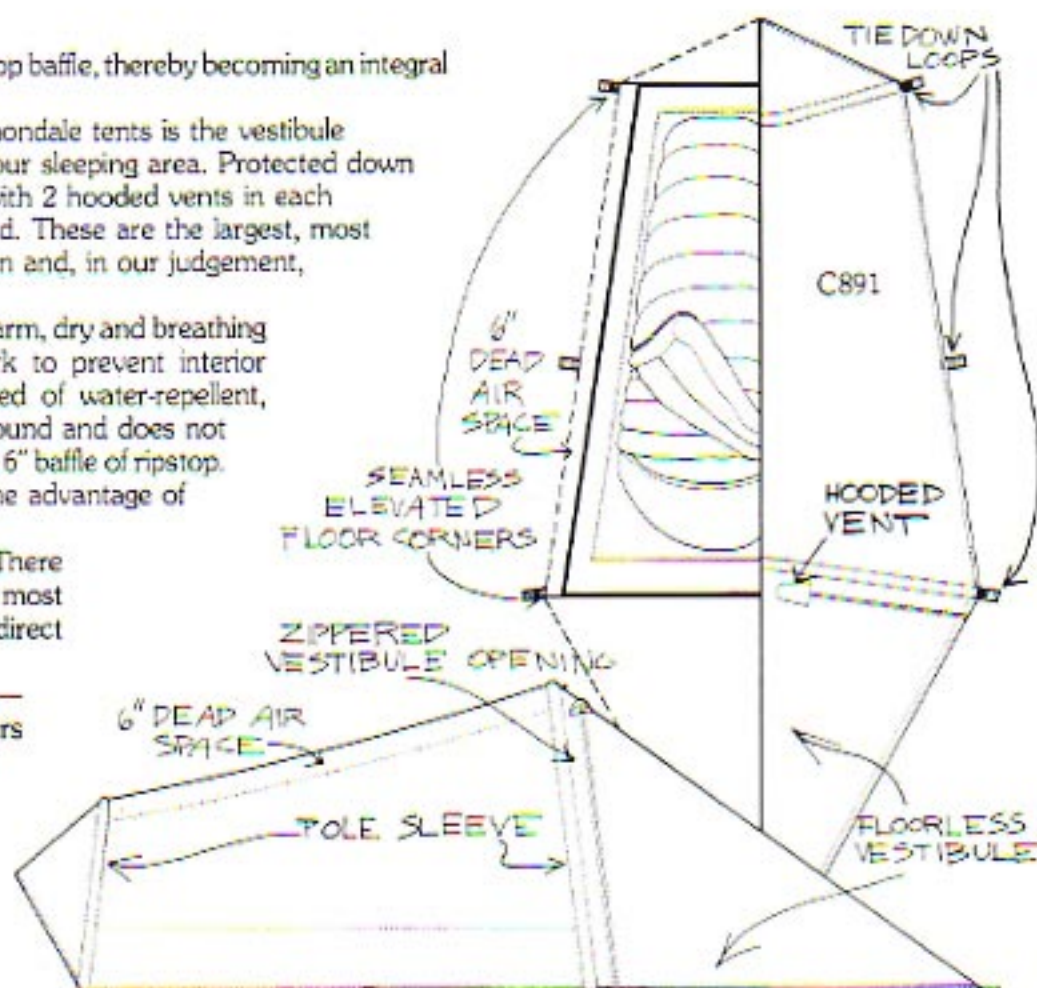 op baffle, thereby becoming an integral
ondale tents is the vestibule
our sleeping area. Protected down
ith 2 hooded vents in each
d. These are the largest, most
n and, in our judgement,
arm, dry and breathing
k to prevent interior
ed of water-repellent,
ound and does not
6" baffle of ripstop.
ne advantage of
There
most
direct
rs
TIE DOWN
LOOPS
C891
6"
DEAD
AIR
SPACE
SEAMLESS
ELEVATED
FLOOR CORNERS
HOODED
VENT
ZIPPERED
VESTIBULE OPENING
6" DEAD AIR
SPACE
POLE SLEEVE
FLOORLESS
VESTIBULE